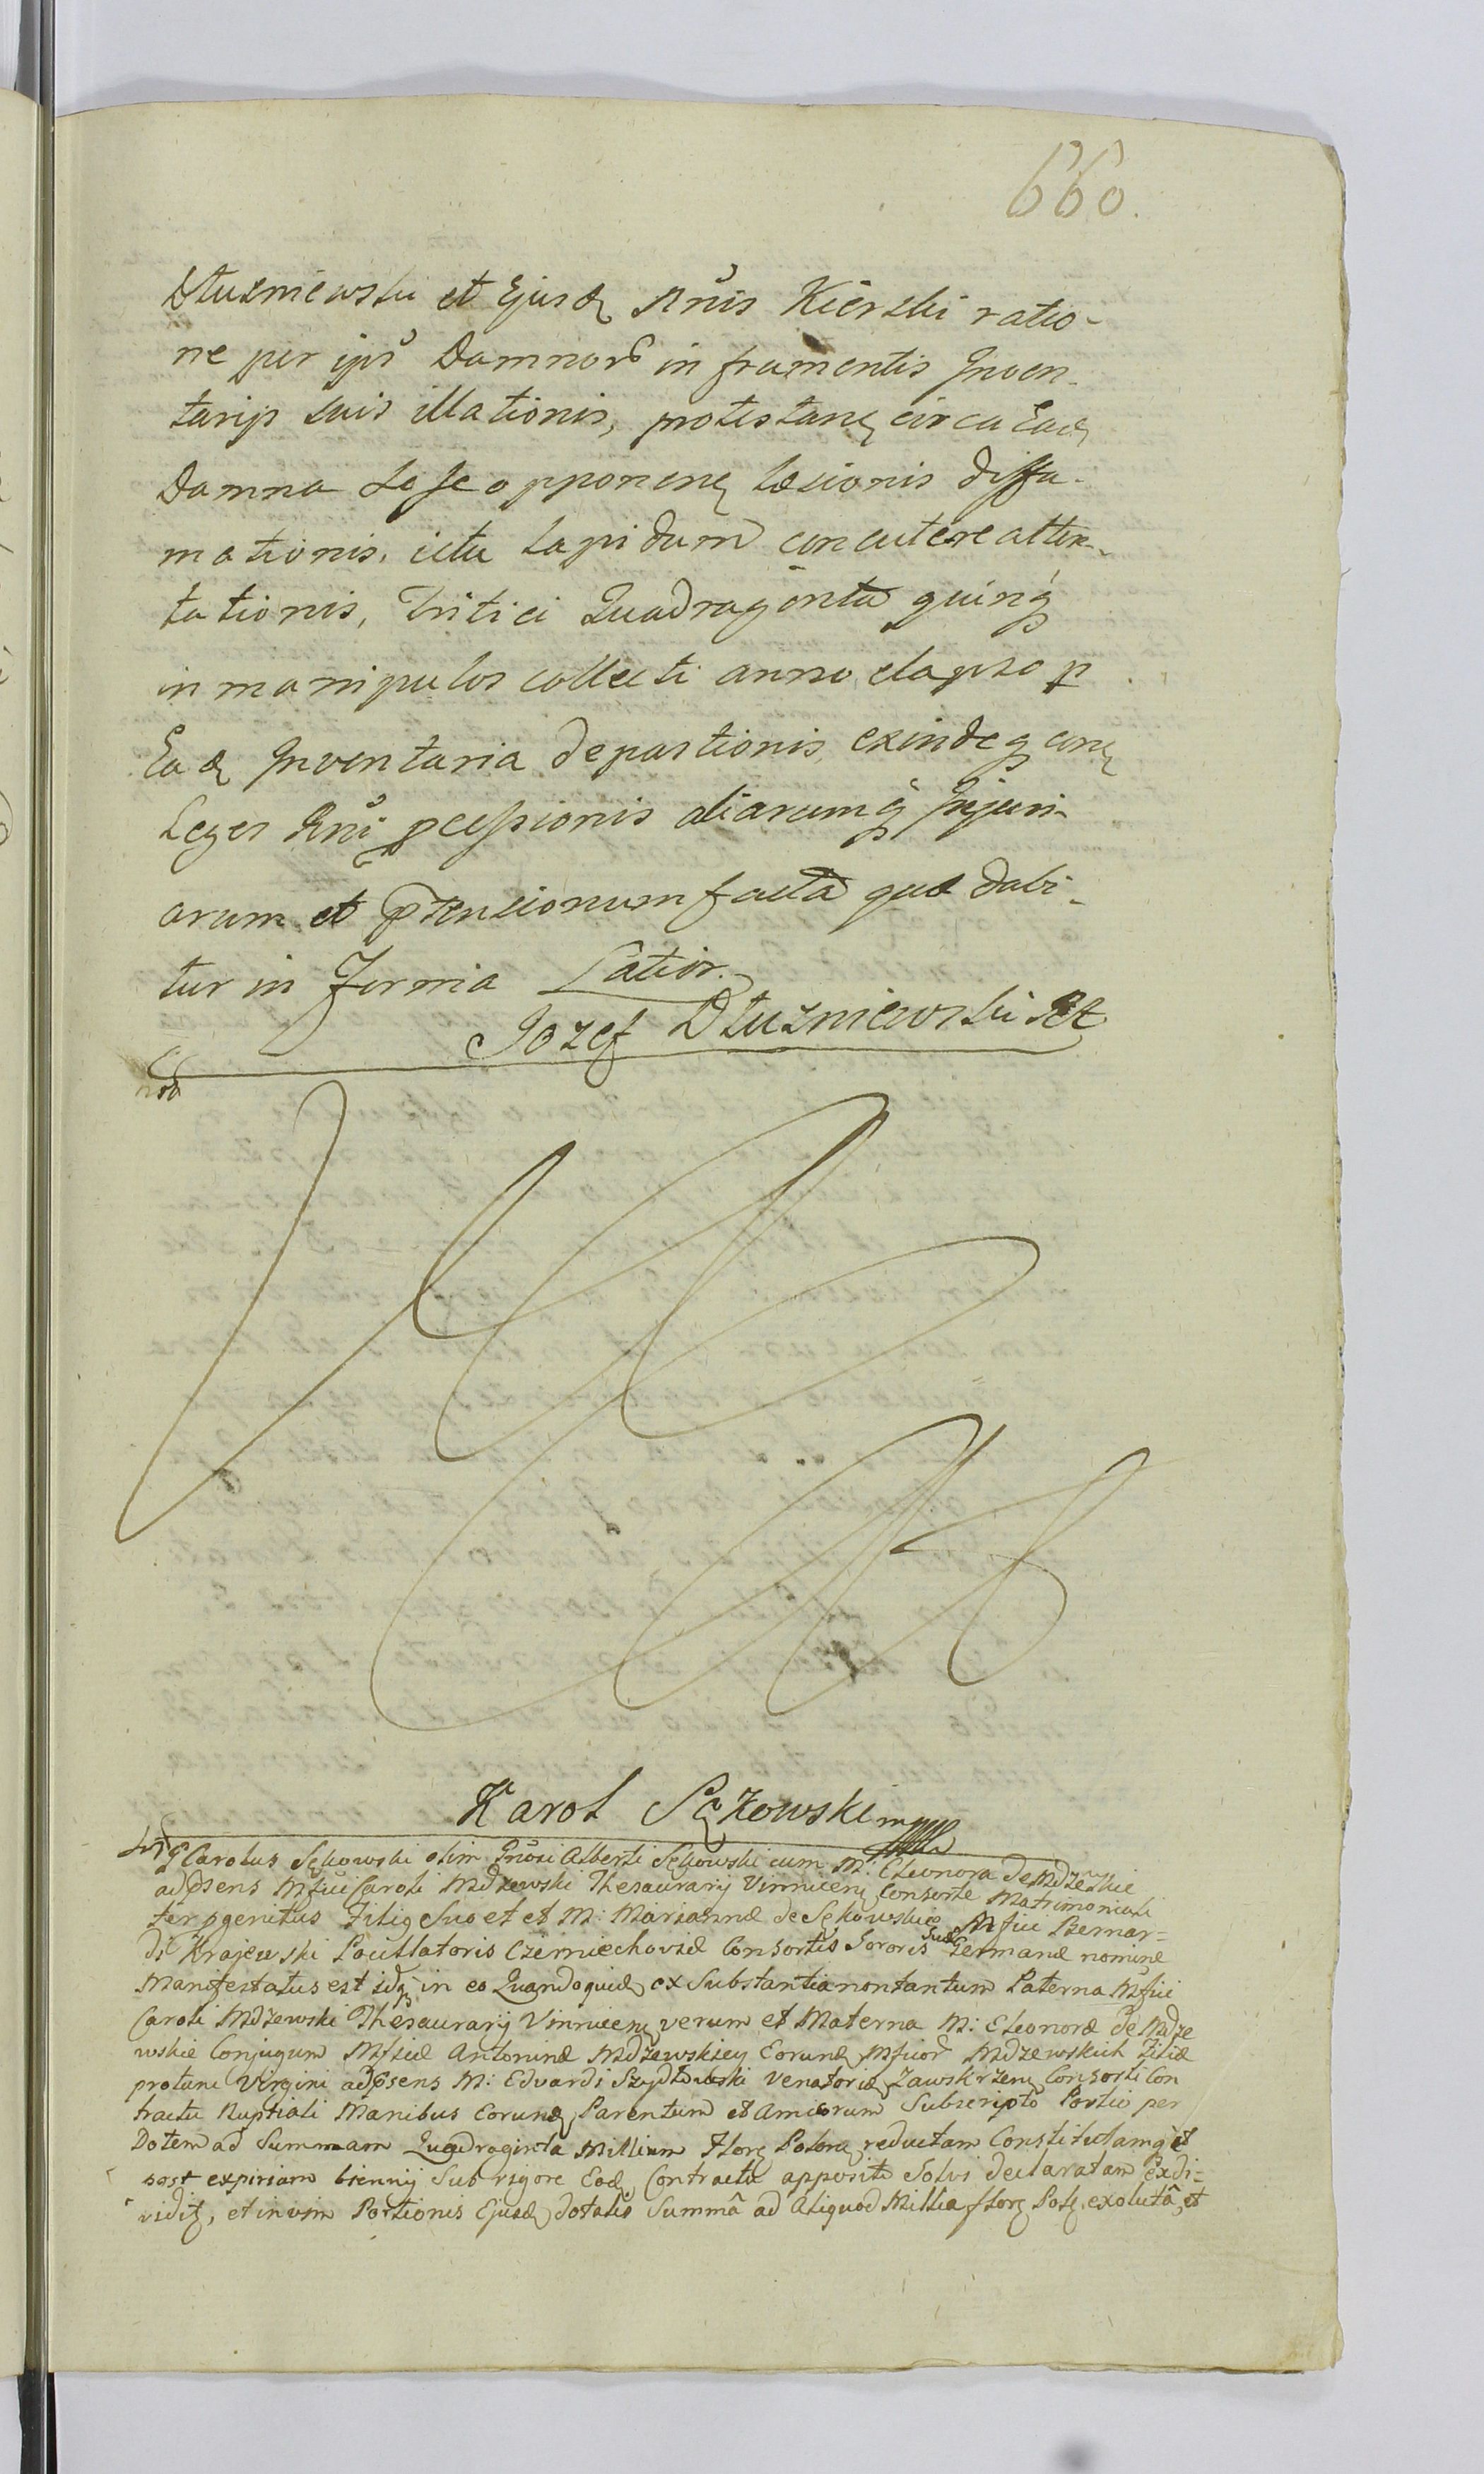 660.
Dłuzniewski et Ejusd Rnis Kierski ratio-
ne per ips Damnor in frumentis Inven-
tarijs suis illationis, protestan circa Ead
Damna se se opponen læsionis diffa-
mationis, ictu Lapidum concutere atten-
tationis, Tritici Quadraginta quinq
in manipulos collecti anno elapso p
Ead Inventaria depastionis, exindeq con
Leges Rni pcessionis aliarumq Injuri-
arum et ptensionum facta quæ dabi-
tur in Forma Latior.
Jozef Dłuzniewski
Karol Sękowski mppa
G Carolus Sękowski olim Gnosi Alberti Sękowski cum M: Eleonora de Mdzewskie
ad psens Mfici Caroli Mdzewski Thesaurarij Vinnicen Consorte Matrimoniali
ter pgenitus Filiq Suo et et M: Mariannæ de Sękowskie Mfici Bernar=
di Krajewski Pocillatoris Czerniechoviæ Consortis Sororis Suæ Germanæ nomine
Manifestatus est idq in eo Quandoquid ex Substantia non tantum Paterna Mfici
Caroli Mdzewski Thesaurarij Vinnicen verum et Materna M: Eleonoræ de Mdze
wskie Conjugum Mficæ Antoninæ Mdzewskiey Eorund Mficor Mdzewskich Filiæ
protunc Virgini ad psens M: Edvardi Szydłowski Venatoris Zawskrzen Consorti Con
tractu Nuptiali Manibus Eorund Parentum et Amicorum Subscripto Portio per
Dotem ad Summam Quadraginta Millium Flor Polon reductam Constitutamq et
post expiriam biennij Sub rigore Eod Contractu apposite Solvi declaratam exdi=
vidit, et in vim Portionis Ejusd dotalis Summâ ad Aliquod Millia flor Pol exolutâ, et